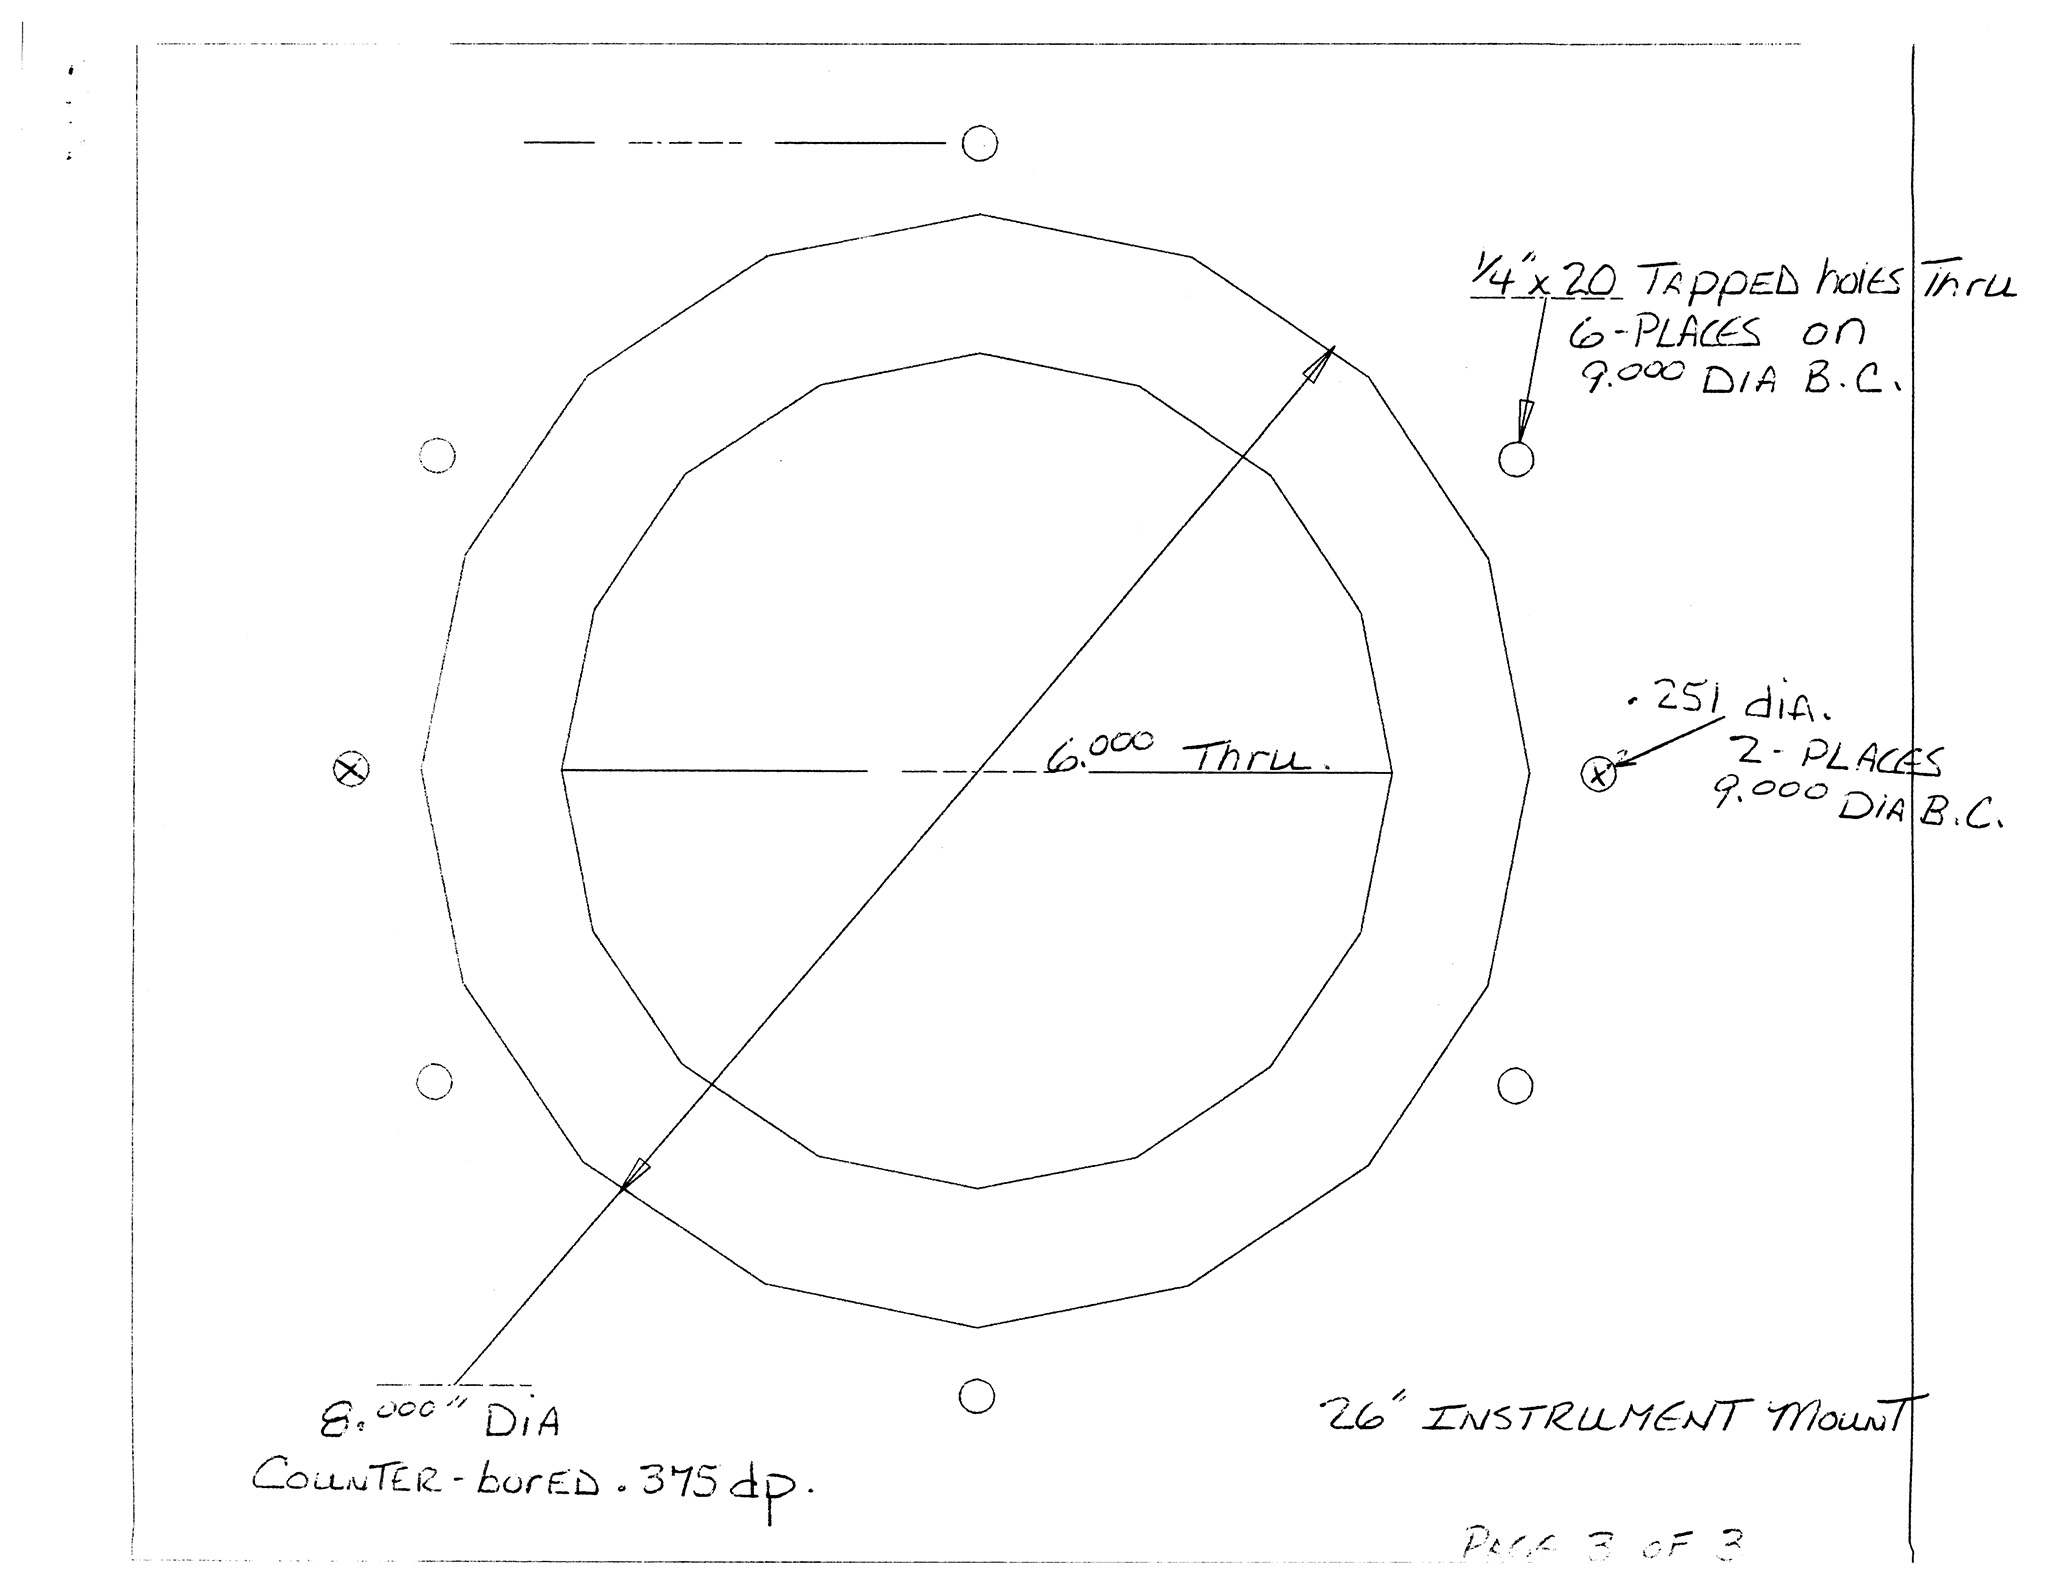 1/4" x 20 TAPPED holes Thru
6-PLACES on
9.000 DIA B.C.
.251 dia.
2-PLACES
9.000 DIA B.C.
6.000 Thru.
8.000" DIA
COUNTER-borED .375 dp.
26" INSTRUMENT MOUNT
PAGE 3 OF 3